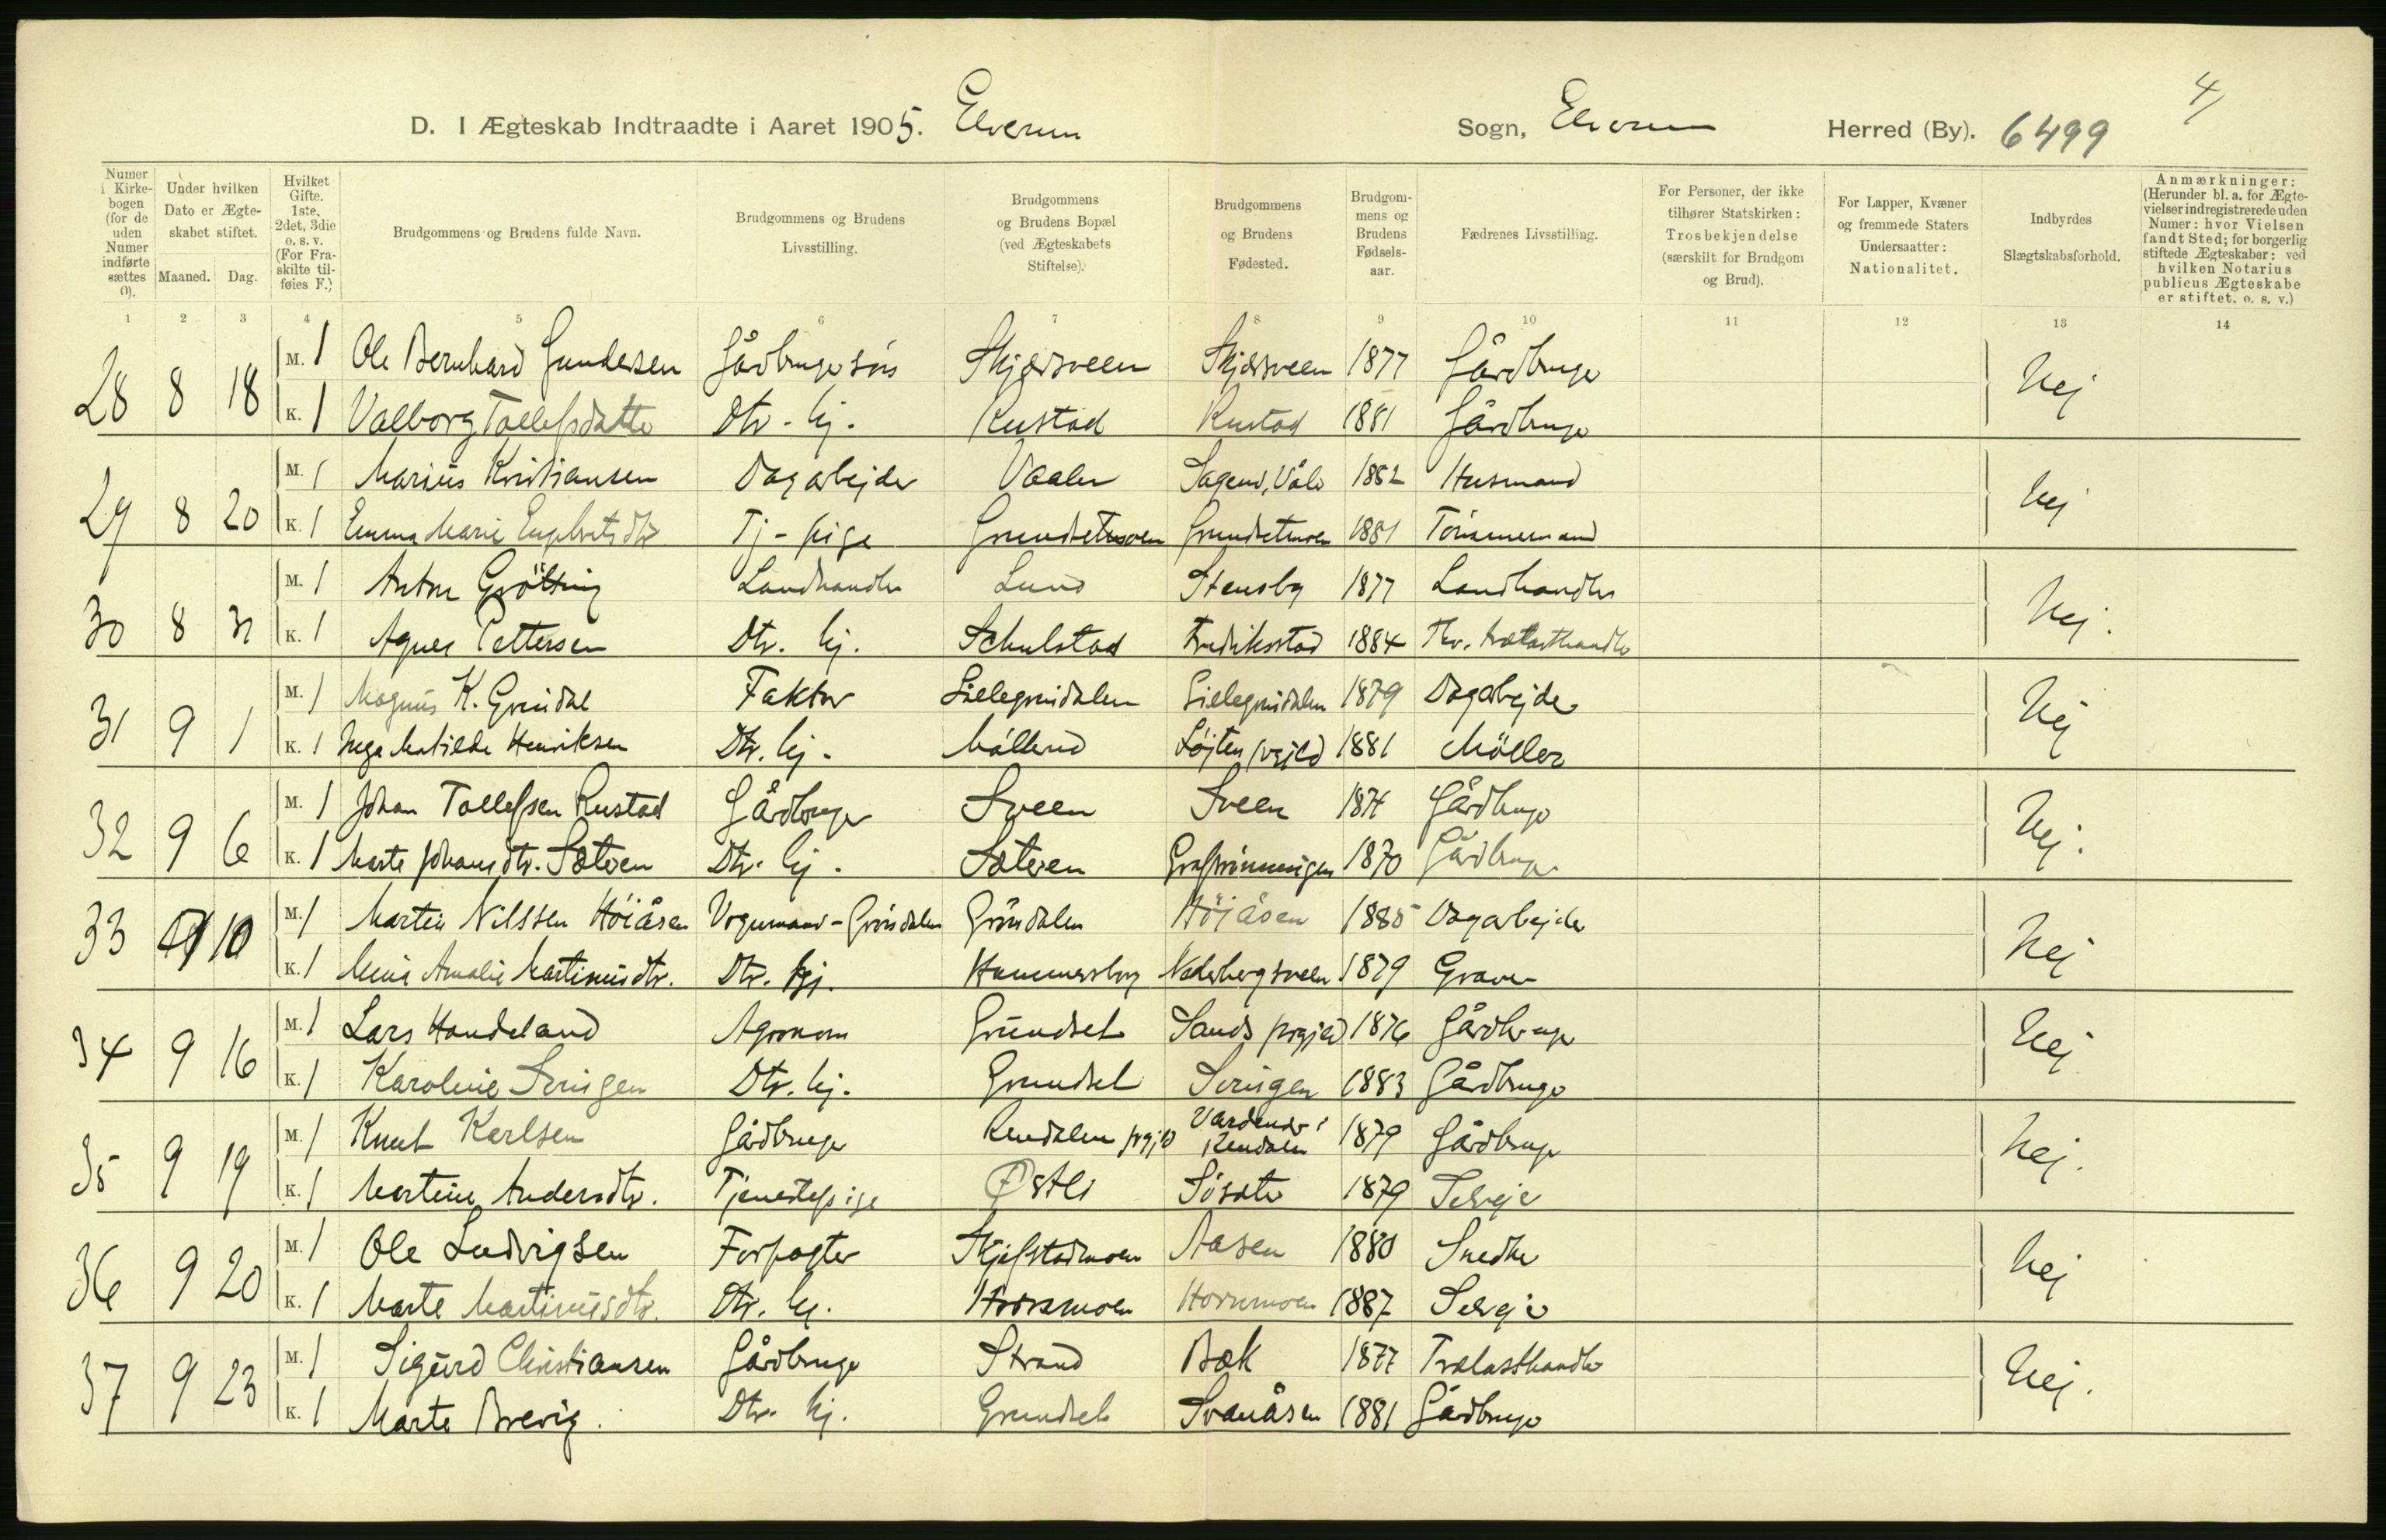 4/
D. I Ægteskab Indtraadte i Aaret 1905. Elverum Sogn, Elverum Herred (By). 6499
Numer i Kirkebogen (for de uden Numer indførte sættes 0).
Under hvilken Dato er Ægteskabet stiftet.
Maaned. Dag.
Hvilket Gifte. 1ste, 2det, 3die o. s. v. (For Fraskilte tilføies F.)
Brudgommens og Brudens fulde Navn.
Brudgommens og Brudens Livsstilling.
Brudgommens og Brudens Bopæl (ved Ægteskabets Stiftelse).
Brudgommens og Brudens Fødested.
Brudgommens og Brudens Fødselsaar.
Fædrenes Livsstilling.
For Personer, der ikke tilhører Statskirken: Trosbekjendelse (særskilt for Brudgom og Brud).
For Lapper, Kvæner og fremmede Staters Undersaatter: Nationalitet.
Indbyrdes Slægtskabsforhold.
Anmærkninger: (Herunder bl. a. for Ægtevielser indregistrerede uden Numer: hvor Vielsen fandt Sted; for borgerlig stiftede Ægteskaber: ved hvilken Notarius publicus Ægteskabe er stiftet. o. s. v.)
1 2 3 4 5 6 7 8 9 10 11 12 13 14
28 8 18 M. 1 Ole Bernhard Gundersen Gårdbrugersøn Skjærsveen Skjærsveen 1877 Gårdbruger Nej
K. 1 Valborg Tollefsdatter Dtr. hj. Rustad Rustad 1881 Gårdbruger
29 8 20 M. 1 Marius Kristiansen Dagarbejder Vaaler Sagen, Våler 1882 Husmand Nej
K. 1 Emma Marie Engebretsdtr Tj-pige Grundsetmoen Grundsetmoen 1881 Tømmermand
30 8 31 M. 1 Anton Grötting Landhandler Lund Stensby 1877 Landhandler Nej.
K. 1 Agnes Pettersen Dtr. hj. Schulstad Fredriksstad 1884 Trælasthandler
31 9 1 M. 1 Magnus K. Grindal Faktor Lillegrindalen Lillegrindalen 1879 Dagarbejder Nej
K. 1 Inga Matilde Henriksen Dtr. hj. Möllerud Løjten prgjld 1881 Möller
32 9 6 M. 1 Johan Tollefsen Rustad Gårdbruger Sveen Sveen 1874 Gårdbruger Nej.
K. 1 Marte Johansdtr. Sætren Dtr. hj. Sætren 1870 Gårdbruger
33 9 10 M. 1 Martin Nilssen Höiåsen Vognmand - Gröndalen Gröndalen Höjåsen 1885 Dagarbejder Nej
K. 1 Mina Amalie Martinusdtr. Dtr. hj. Hammersberg Næbergsveen 1879 Graver
34 9 16 M. 1 Lars Handeland Agronom Grundset Sands prgjld 1876 Gårdbruger Nej
K. 1 Karoline Svingen Dtr. hj. Grundset Svingen 1883 Gårdbruger
35 9 19 M. 1 Knut Karlsen Gårdbruger Rendalen prgjld i Rendalen 1879 Gårdbruger Nej.
K. 1 Martine Andersdtr. Tjenestepige Østli 1879 Selveje
36 9 20 M. 1 Ole Ludvigsen Forpagter Skjefstadmoen Aasen 1880 Snedker Nej
K. 1 Marte Martinusdtr. Dtr. hj. Hornmoen Hornmoen 1887 Selvejer
37 9 23 M. 1 Sigurd Christiansen Gårdbruger Strand Bæk 1877 Trælasthandler Nej.
K. 1 Marte Brevig. Dtr. hj. Grundset Svenåsen 1881 Gårdbruger